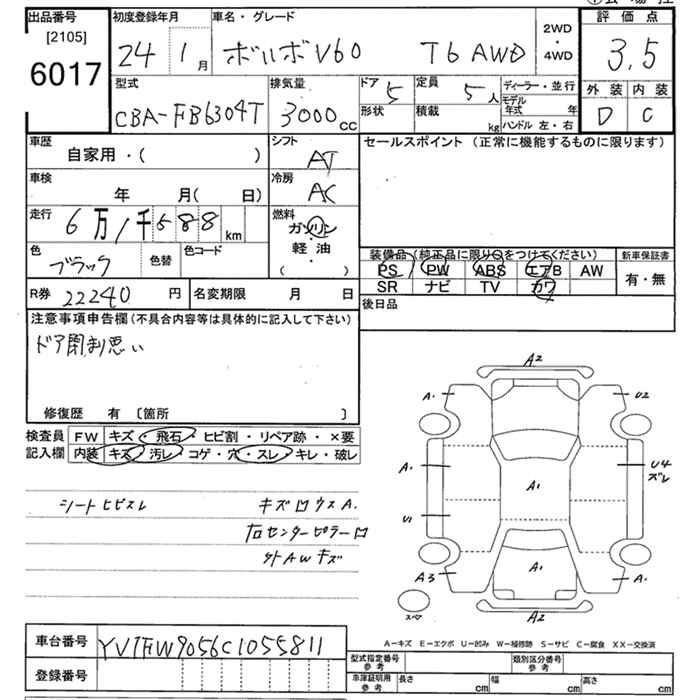 出品番号 初度登録年月 車名・グレード 評価点
[2105] 6017 24 1月 ボルボV60 T6 AWD 2WD・4WD 3.5
型式 排気量 ドア 定員 ディーラー・並行 外装 内装
CBA-FB6304T 3000cc 5 5人 モデル年式 年 D C
形状 積載 kg ハンドル 左・右
車歴 シフト セールスポイント(正常に機能するものに限ります)
自家用・( ) AT
車検 冷房
年 月( 日) AC
走行 燃料
6万1千588km ガソリン・軽油
( )
色 色替 色コード 装備品(純正品に限り○をつけてください) 新車保証書
ブラック PS PW ABS エアB AW 有・無
R券 22240円 名変期限 月 日 SR ナビ TV カワ
注意事項申告欄(不具合内容等は具体的に記入して下さい) 後日品
ドア閉まり悪い
修復歴 有 〔箇所 〕
検査員 FW キズ・飛石・ヒビ割・リペア跡・×要
記入欄 内装 キズ・汚レ・コゲ・穴・スレ・キレ・破レ
シートヒビスレ キズ凹ウスA.
右センターピラー凹
外AWキズ
A2
A. U2
A. A1 U4 ズレ
U1
A3 A1 A.
スペア A2
車台番号 YV1FW9056C1055811
登録番号
A-キズ E-エクボ U-凹み W-補修跡 S-サビ C-腐食 XX-交換済
型式指定番号 参考 類別区分番号 参考
車庫証明用 参考 長さ cm 幅 cm 高さ cm